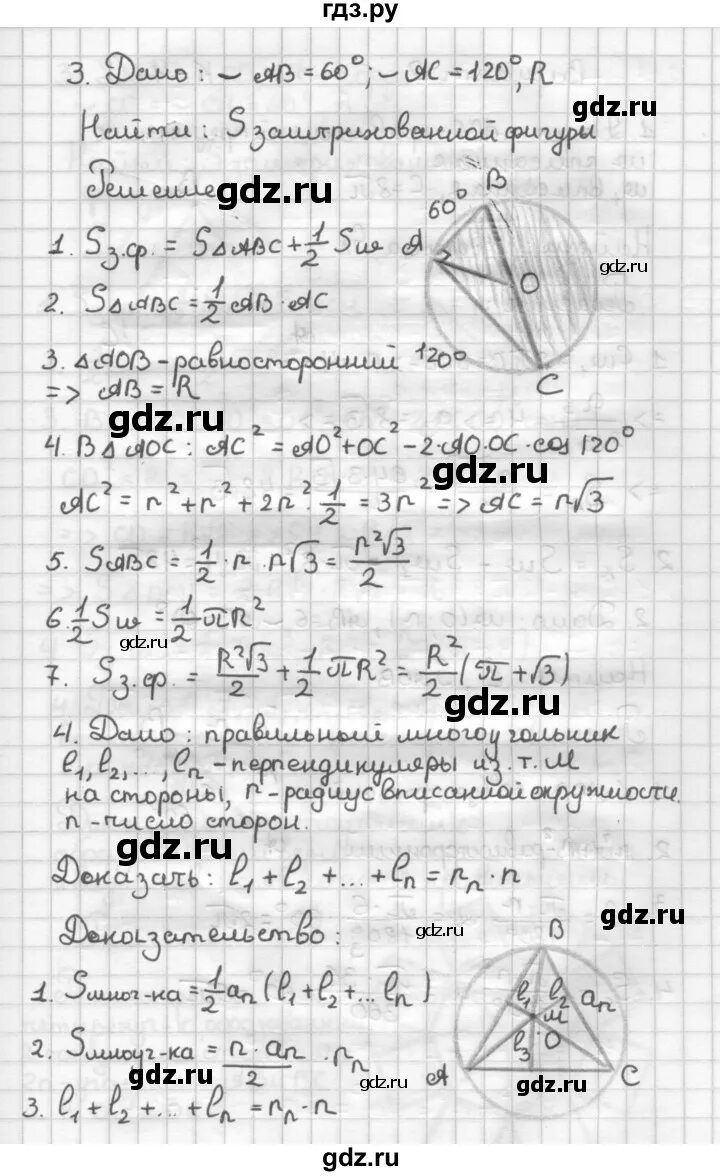 гдз.ру
3. Дано: ◡ AB = 60°; ◡ AC = 120°, R
gdz.ru
Найти: S заштрихованной фигуры
Решение
gdz.ru
B
60°
1. Sз.ф. = S△ABC + 1/2 Sш
A
gdz.ru
O
2. S△ABC = 1/2 AB · AC
3. △AOB - равносторонний
120°
C
=> AB = R
gdz.ru
4. В △AOC: AC² = AO² + OC² - 2·AO·OC·cos 120°
gdz.ru
AC² = r² + r² + 2r² · 1/2 = 3r² => AC = r√3
5. SABC = 1/2 · r · r√3 = r²√3/2
6. 1/2 Sш = 1/2 πR²
gdz.ru
7. Sз.ф. = R²√3/2 + 1/2 πR² = R²/2 (π + √3)
gdz.ru
4. Дано: правильный многоугольник
l₁, l₂, ..., lₙ - перпендикуляры из т. M
на стороны, r - радиус вписанной окружности.
n - число сторон.
gdz.ru
Доказать: l₁ + l₂ + ... + lₙ = rₙ · n
gdz.ru
Доказательство:
gdz.ru
B
1. Sмног-ка = 1/2 aₙ (l₁ + l₂ + ... lₙ)
l₁ l₂ aₙ
M
l₃ O
2. Sмноуг-ка = n · aₙ/2 · rₙ
A
C
gdz.ru
gdz.ru
gdz.ru
3. l₁ + l₂ + ... + lₙ = rₙ · n
gdz.ru